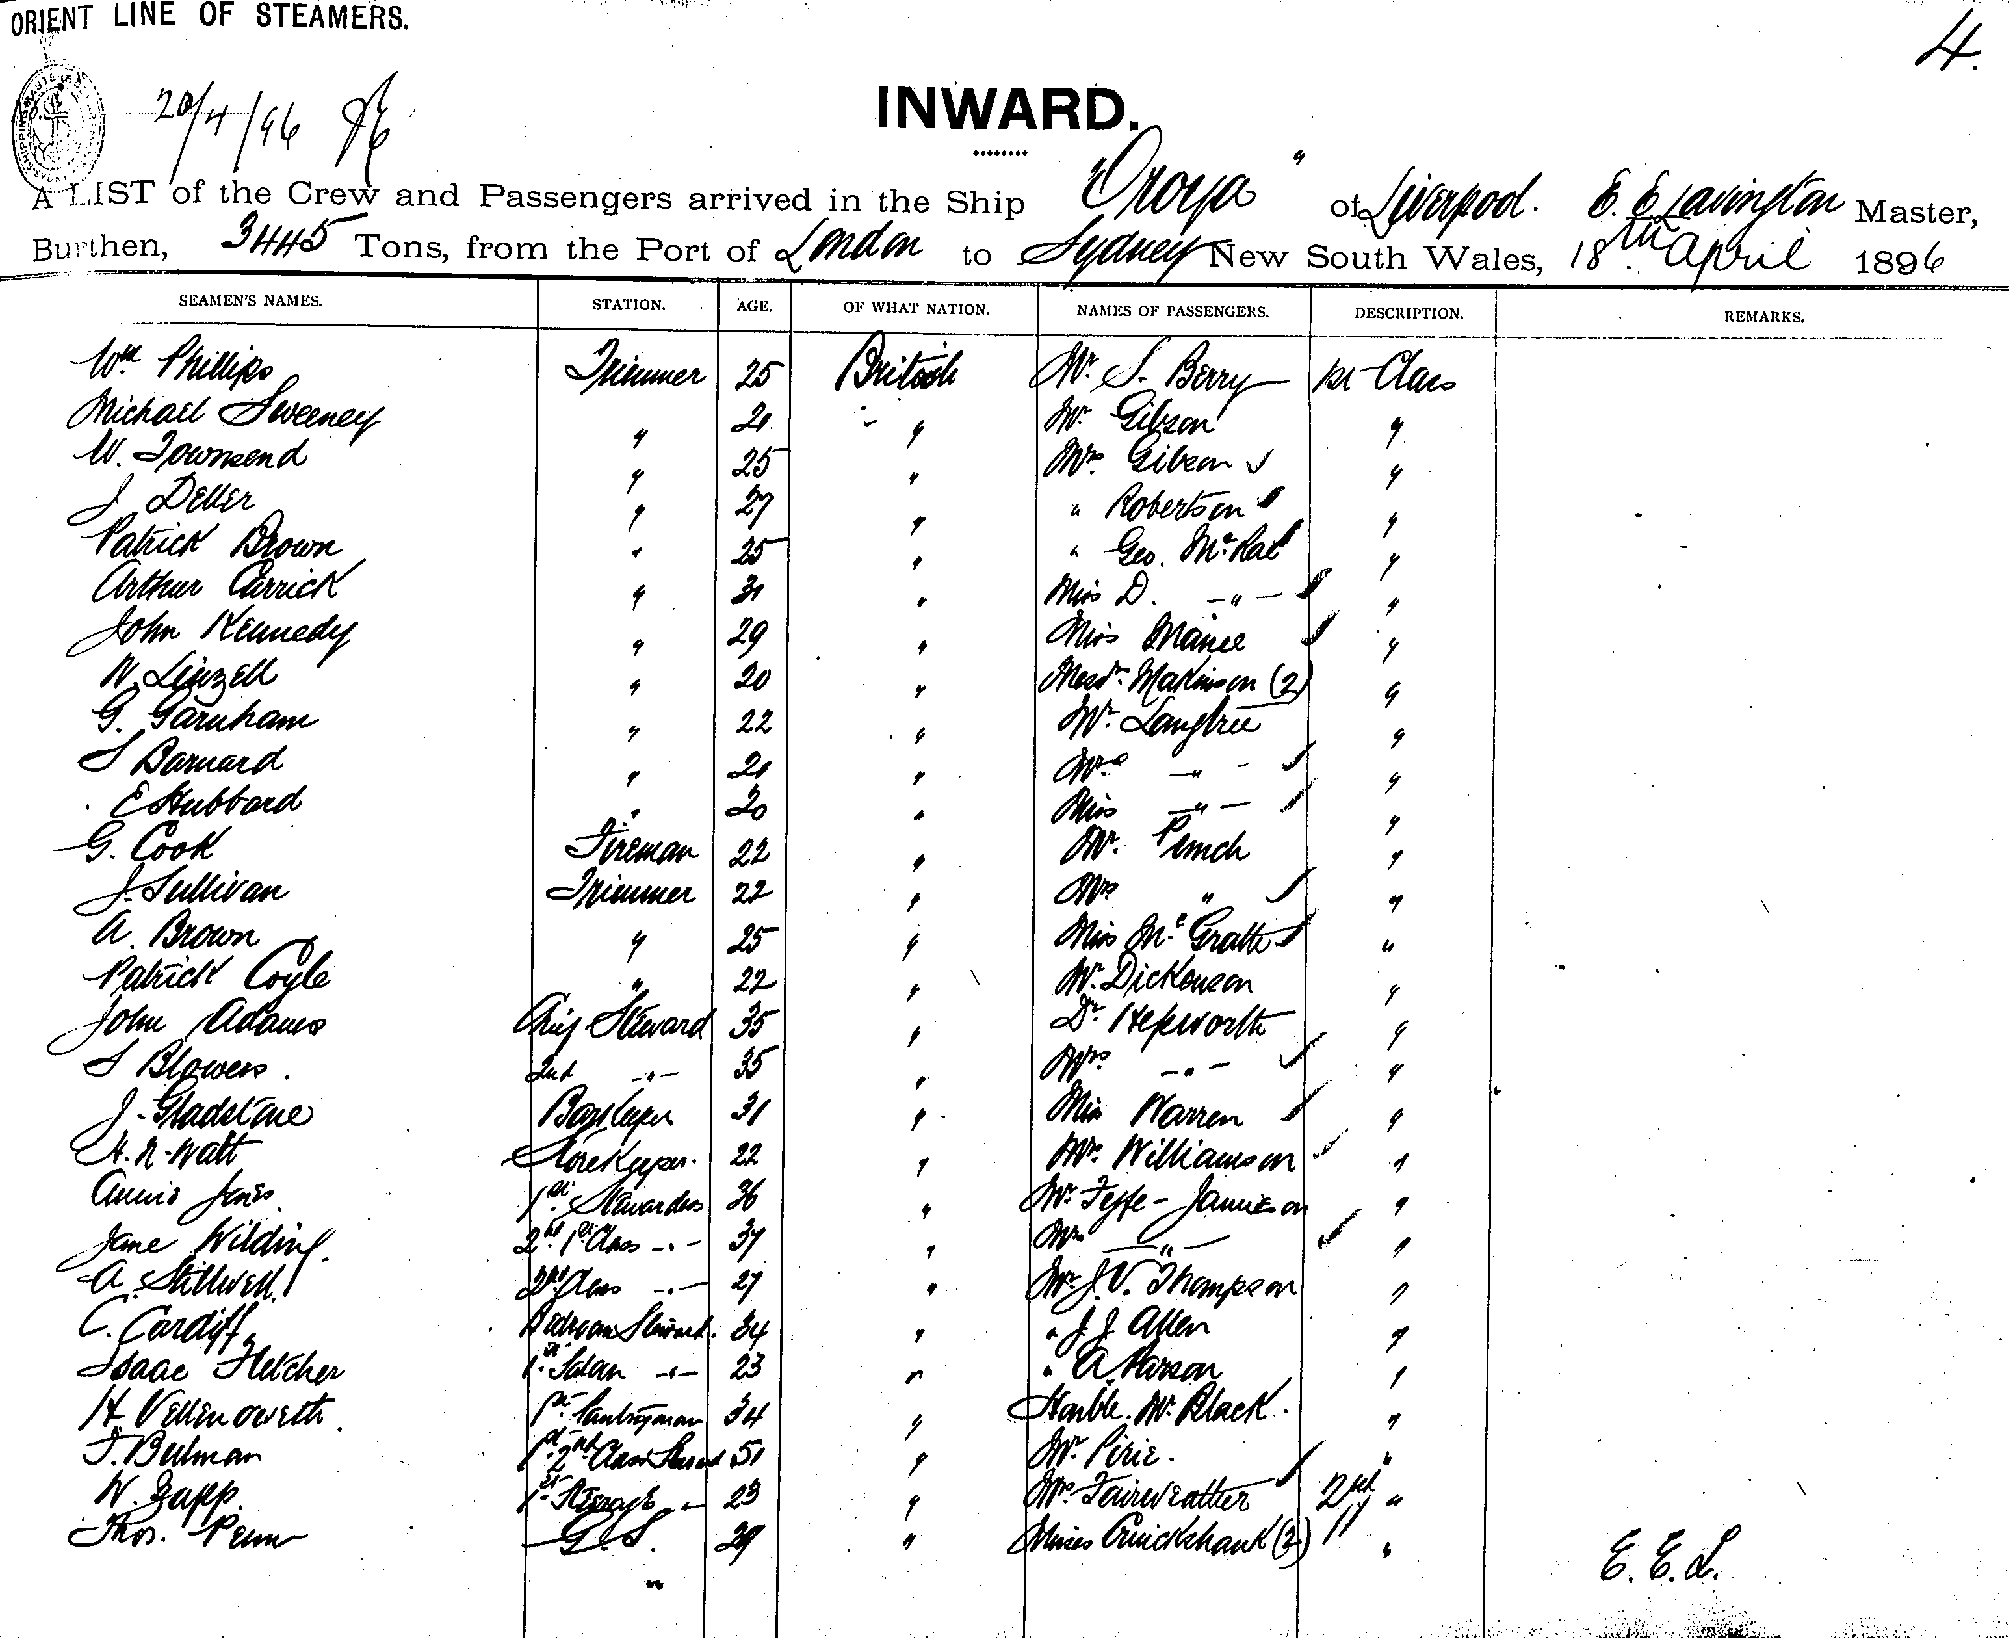 ORIENT LINE OF STEAMERS.
4.
20/4/96
INWARD.
A LIST of the Crew and Passengers arrived in the Ship "Oroya" of Liverpool. E. E. Lavington Master,
Burthen, 3445 Tons, from the Port of London to Sydney New South Wales, 18th April 1896
SEAMEN'S NAMES. STATION. AGE. OF WHAT NATION. NAMES OF PASSENGERS. DESCRIPTION. REMARKS.
Wm Phillips Trimmer 25 British Mr. S. Berry 1st Class
Michael Sweeney " 21 " Mr. Gibson "
W. Townsend " 25 " Mrs. Gibson "
J Deller " 27 " " Robertson "
Patrick Brown " 25 " " Geo. McRae "
Arthur Carrick " 31 " Miss D. -"- "
John Kennedy " 29 " Miss Manee "
W. Linzell " 20 " Messrs. Makinson (2) "
G. Garnham " 22 " Mr. Langtree "
S Barnard " 21 " Mrs -"- "
E Hubbard " 20 " Miss -"- "
G. Cook Fireman 22 " Mr. Pinch "
J. Sullivan Trimmer 22 " Mrs " "
A. Brown " 25 " Miss McGrath "
Patrick Coyle " 22 " Mr. Dickenson "
John Adams Chief Steward 35 " Dr. Hepworth "
S Blowers. 2nd -"- 35 " Mrs -"- "
J. Gladstone Barkeeper 31 " Miss Warren "
H. R. Watt Storekeeper. 22 " Mrs. Williamson "
Annie Jones 1st Stewardess 36 " Mr. Fyffe-Jamieson "
Jane Wilding. 2nd 1st Class -"- 37 " Mrs -"- "
A. Stillwell 2nd Class -"- 27 " Mr J. V. Thompson "
C. Cardiff Bedroom Steward. 34 " " J J Allen "
Isaac Fletcher 1st Saloon -"- 23 " " A. Parson "
H. Vellenoweth. 1st Pantryman 34 " Honble. Mr. Black. "
T. Bulman 1st 2nd Class Steward 51 " Mr. Pirie. "
W. Zapp. 1st Steerage " 23 " Mrs. Fairweather 2nd "
Thos. Penn G. S. 29 " Misses Cruickshank (2) "
"
E. E. L.